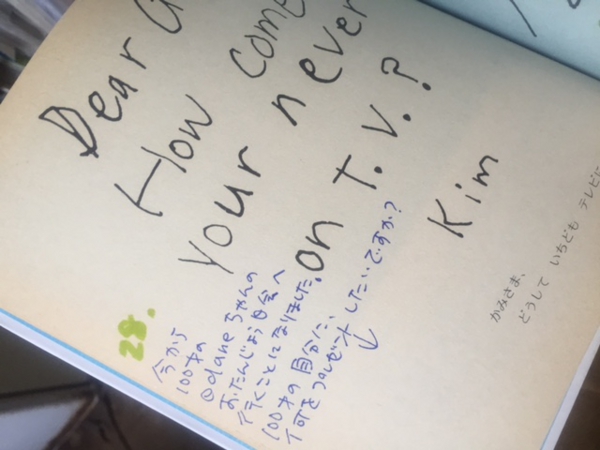 Dear G
How come
your never
on T.V.?
Kim
かみさま、
どうして いちども テレビに
28.
今から
100才の
@daneちゃんの
おたんじょお日会へ
行くことになりました。
100才の自分に、
何をプレゼントしたいですか?